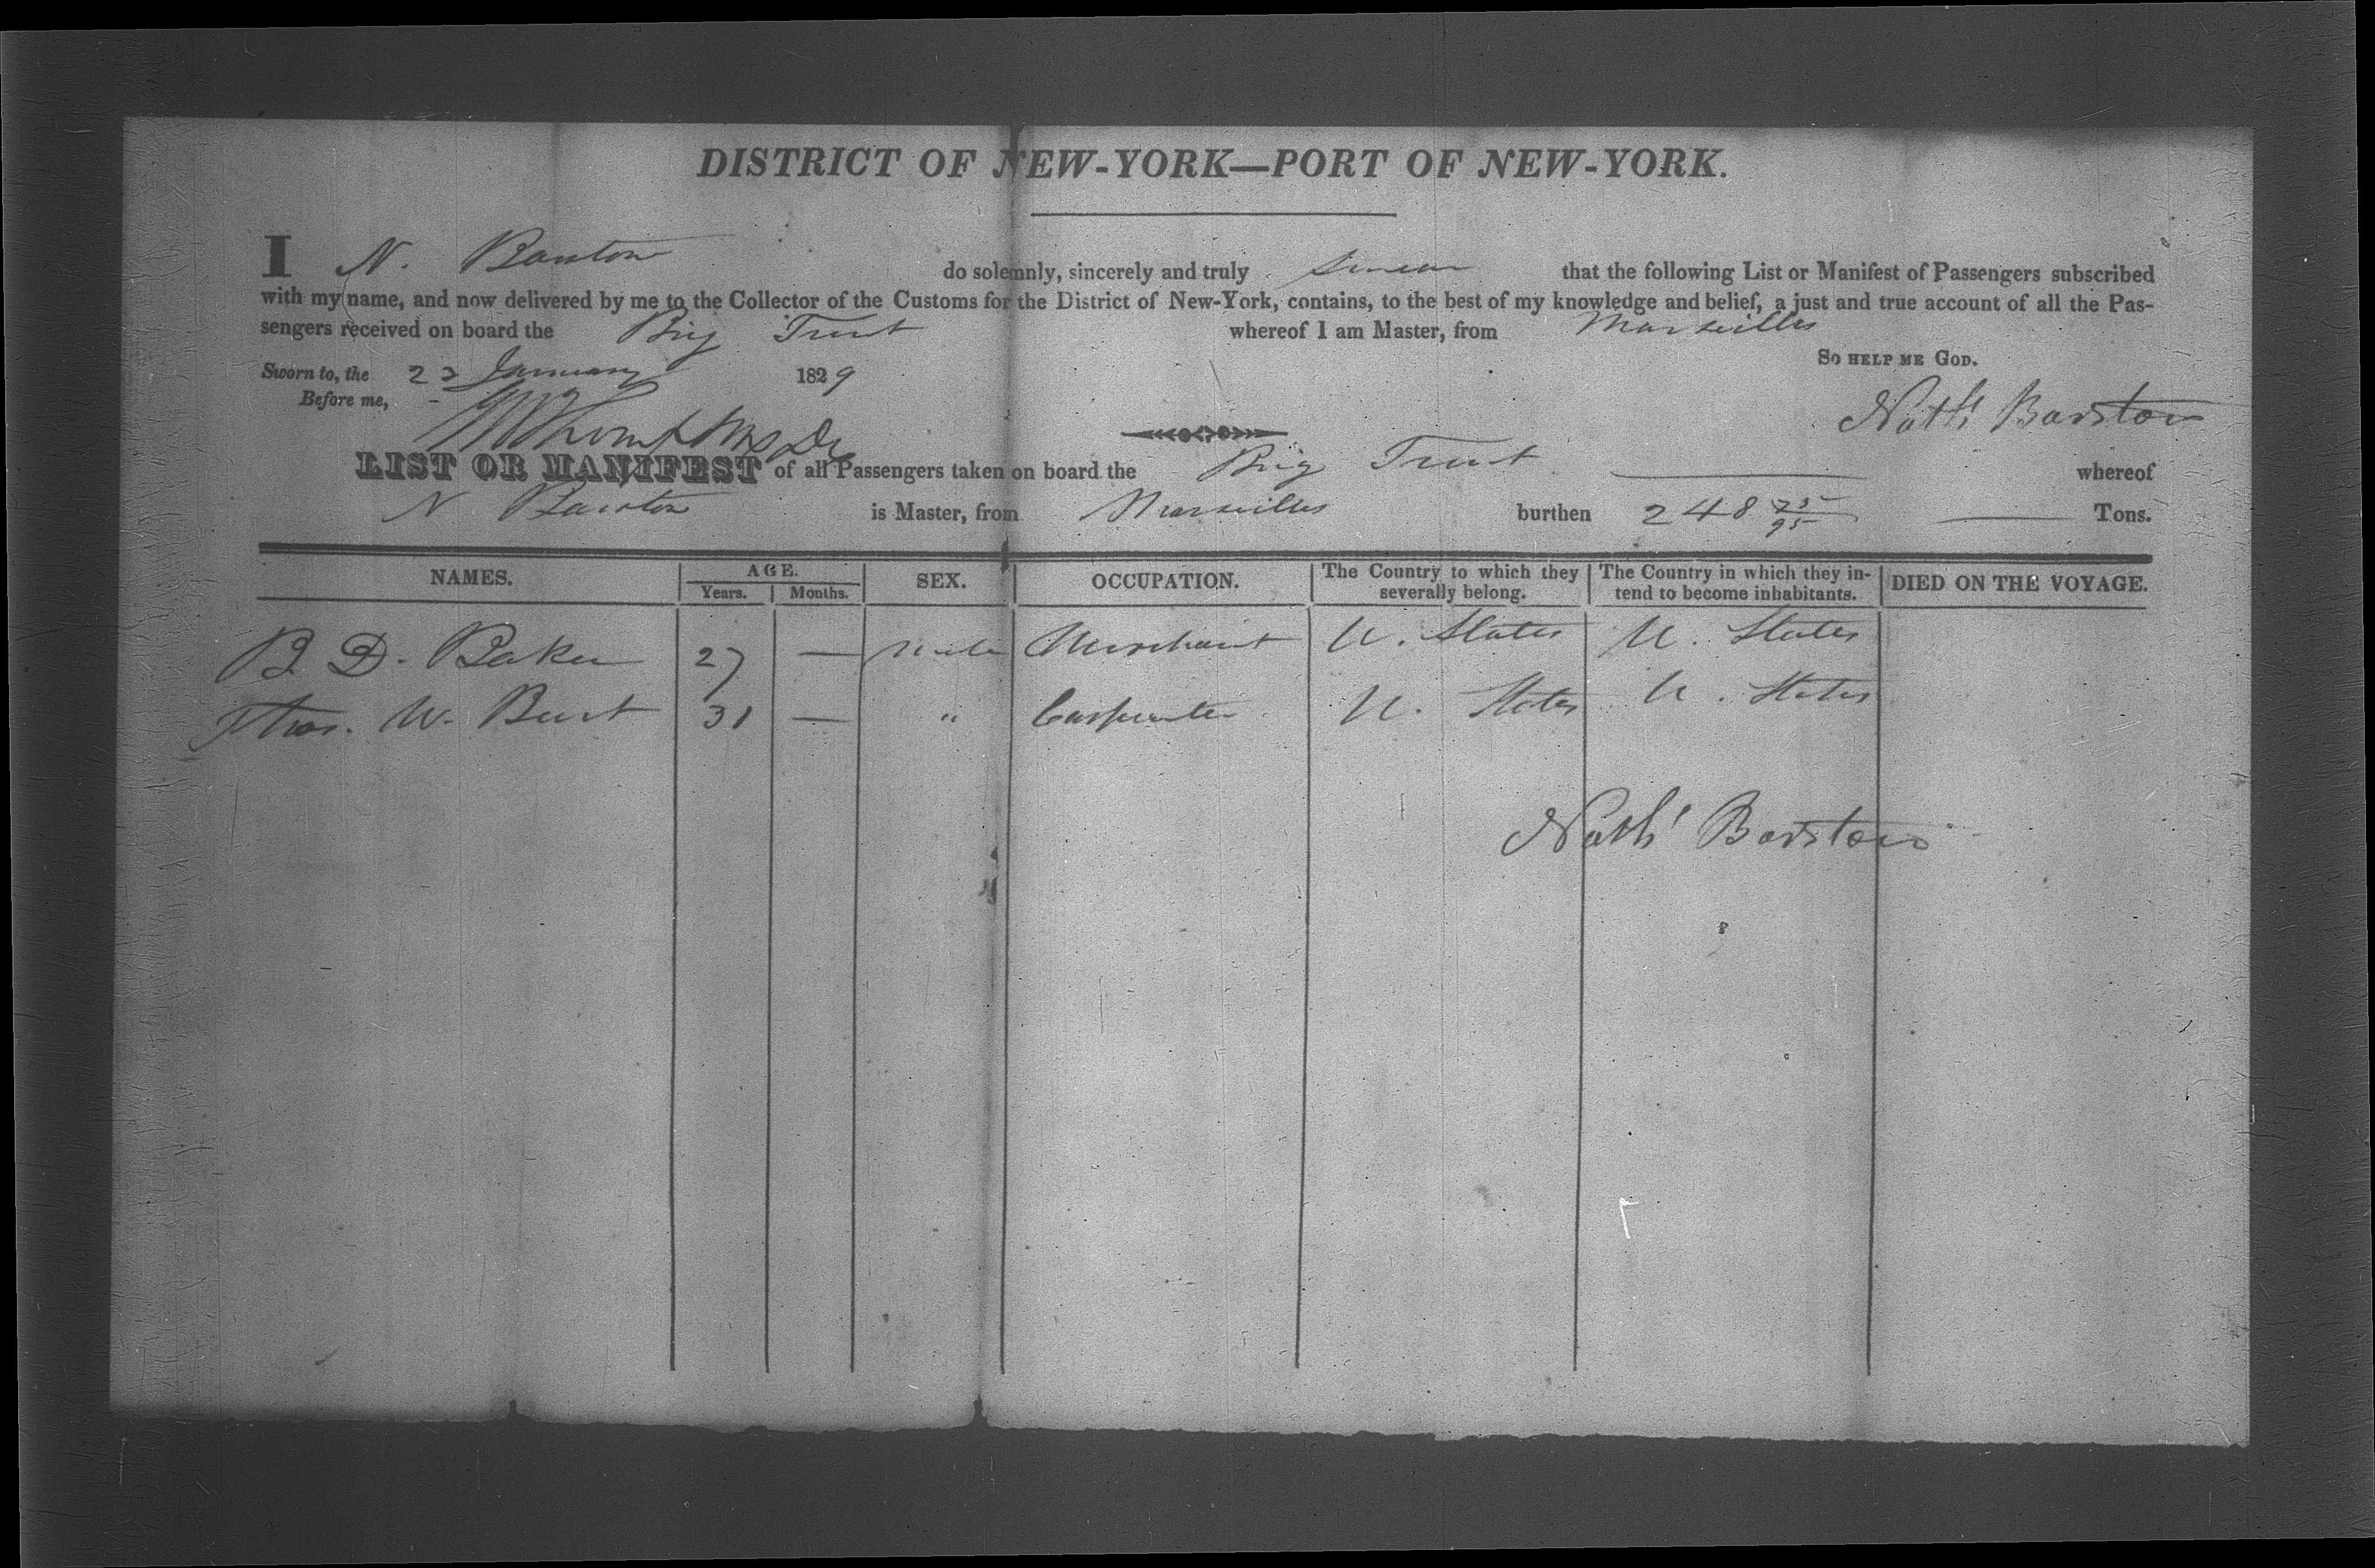 DISTRICT OF NEW-YORK—PORT OF NEW-YORK.
I N. Barstow do solemnly, sincerely and truly swear that the following List or Manifest of Passengers subscribed
with my name, and now delivered by me to the Collector of the Customs for the District of New-York, contains, to the best of my knowledge and belief, a just and true account of all the Pas-
sengers received on board the Brig Trent whereof I am Master, from Marseilles
SO HELP ME GOD.
Sworn to, the 22 January 1829
Before me,
Nathl Barstow
LIST OR MANIFEST of all Passengers taken on board the Brig Trent whereof
N Barstow is Master, from Marseilles burthen 248 75/95 Tons.
NAMES. AGE. SEX. OCCUPATION. The Country to which they severally belong. The Country in which they in-tend to become inhabitants. DIED ON THE VOYAGE.
Years. Months.
B. D. Baker 27 — Male Merchant U. States U. States
Thos. W. Burt 31 — " Carpenter U. States U. States
Nathl Barstow